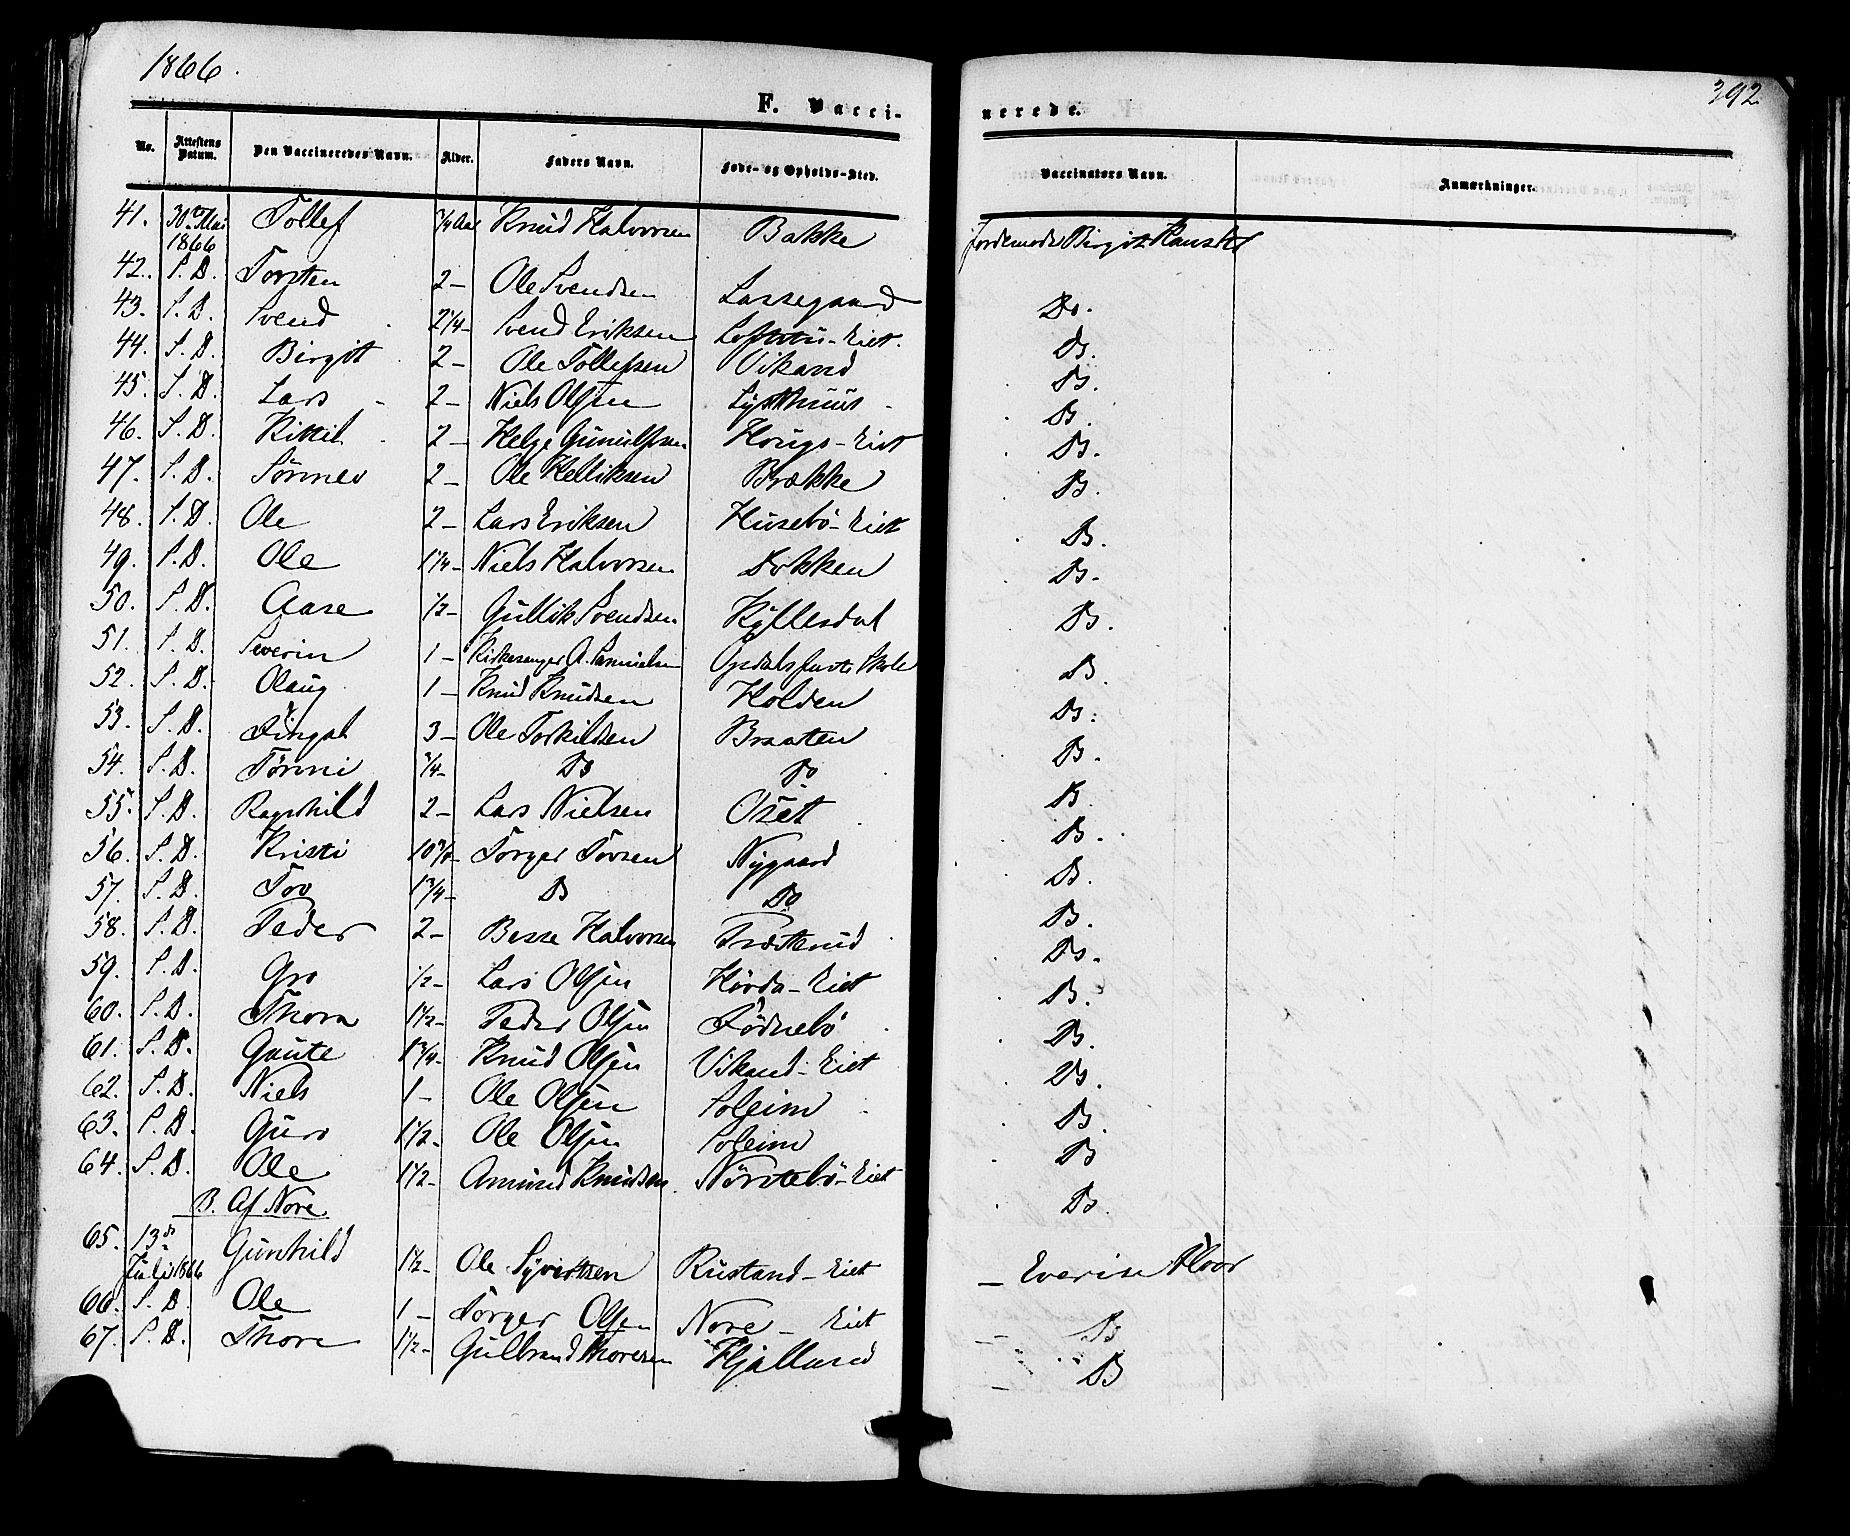 1866.
392
F. Vacci-
nerede.
No. Attestens Datum. Den Vaccineredes Navn. Alder. Faders Navn. Føde- og Opholds-Sted. Vaccinators Navn. Anmærkninger.
41. 30te Mai 1866 Tollef 3/4 Aar Knud Halvorsen Bakke Jordemoder Birgit
42. S. D. Torsten 2 – Ole Svendsen Lassegaard Do.
43. S. D. Svend 2 1/4 – Svend Eriksen Eiet. Do.
44. S. D. Birgit 2 – Ole Tollefsen Vikand Do.
45. S. D. Lars 2 – Niels Olsen Lysthuus Do.
46. S. D. Kittil 2 – Helge Gunulfsen Hougs-Eiet Do.
47. S. D. Tönnes 2 – Ole Helliksen Brække Do.
48. S. D. Ole 2 – Lars Eriksen Husebö-Eiet Do.
49. S. D. Ole 1 1/4 – Niels Halvorsen Dokken Do.
50. S. D. Aase 1/2 – Gullik Svendsen Kyllesdal Do.
51. S. D. Severin 1 – Kirkesanger A. Samuelsen Skole Do.
52. S. D. Olaug 1 – Knud Knudsen Holden Do.
53. S. D. Fingal 3 – Ole Torkildsen Braaten Do.
54. S. D. Tönni 3/4 – Do Do Do.
55. S. D. Ragnhild 2 – Lars Nielsen Oset Do.
56. S. D. Kristi 10 – Torger Tovsen Nygaard Do.
57. S. D. Tov 1 3/4 – Do Do Do.
58. S. D. Peder 2 – Besse Halvorsen Trætterud Do.
59. S. D. Gro 1/2 – Lars Olsen Hövda-Eiet Do.
60. S. D. Thora 1 1/2 – Peder Olsen Födnebö Do.
61. S. D. Gaute 1 3/4 – Knud Olsen Vikand-Eiet Do.
62. S. D. Niels 1 – Ole Olsen Soleim Do.
63. S. D. Guro 1 1/2 – Ole Olsen Soleim Do
64. S. D. Ole 1 1/2 – Amund Knudsen Nörstebö-Eiet Do.
B. Af Nore
65. 13de Juli 1866 Gunhild 1 1/2 – Ole Syvertsen Rustand-Eiet – Everine Hvor
66. S. D. Ole 1 – Torger Olsen Nore – Eiet – Do
67. S. D. Thore 1 1/2 – Gulbrand Thoresen Hjallund – Do